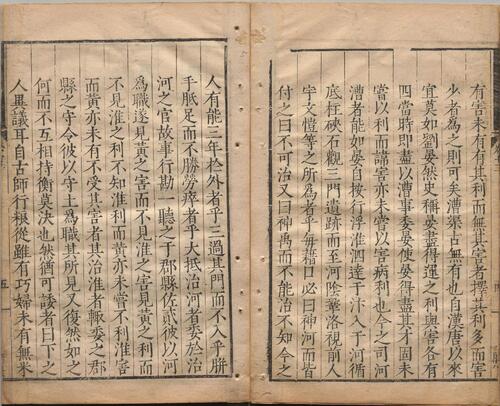 有害未有有其利而無其害者擇其利多而害
少者為之則可矣漕渠古無有也自漢唐以來
宜莫如劉晏然史稱晏盡得運之利與害各有
四當時即盡以漕事委晏使晏得盡其才固未
嘗以利而諱害亦未嘗以害病利也今之司河
漕者能如晏自按行浮淮泗達于汴入于河循
底柱硤石觀三門遺跡而至河陰鞏洛視前人
宇文愷等之所為者乎毎藉口必曰神河而皆
付之曰不可治又曰神禹而不能治不知今之
人有能三年於外者乎三過其門而不入乎胼
手胝足而不勝勞瘁者乎大抵治河者委於治
河之官故事行勘一聽之于郡縣佐貳彼以河
為職遂見黃之害而不見淮之害見黃之利而
不見淮之利不知淮利而黃亦未嘗不利淮害
而黃亦未有不受其害者其治淮者輒委之郡
縣之守令彼以守土為職其所見又復然如之
何而不互相持衡莫決也然猶可諉者曰下之
人異議耳自古師行糧從雖有巧婦未有無米
五